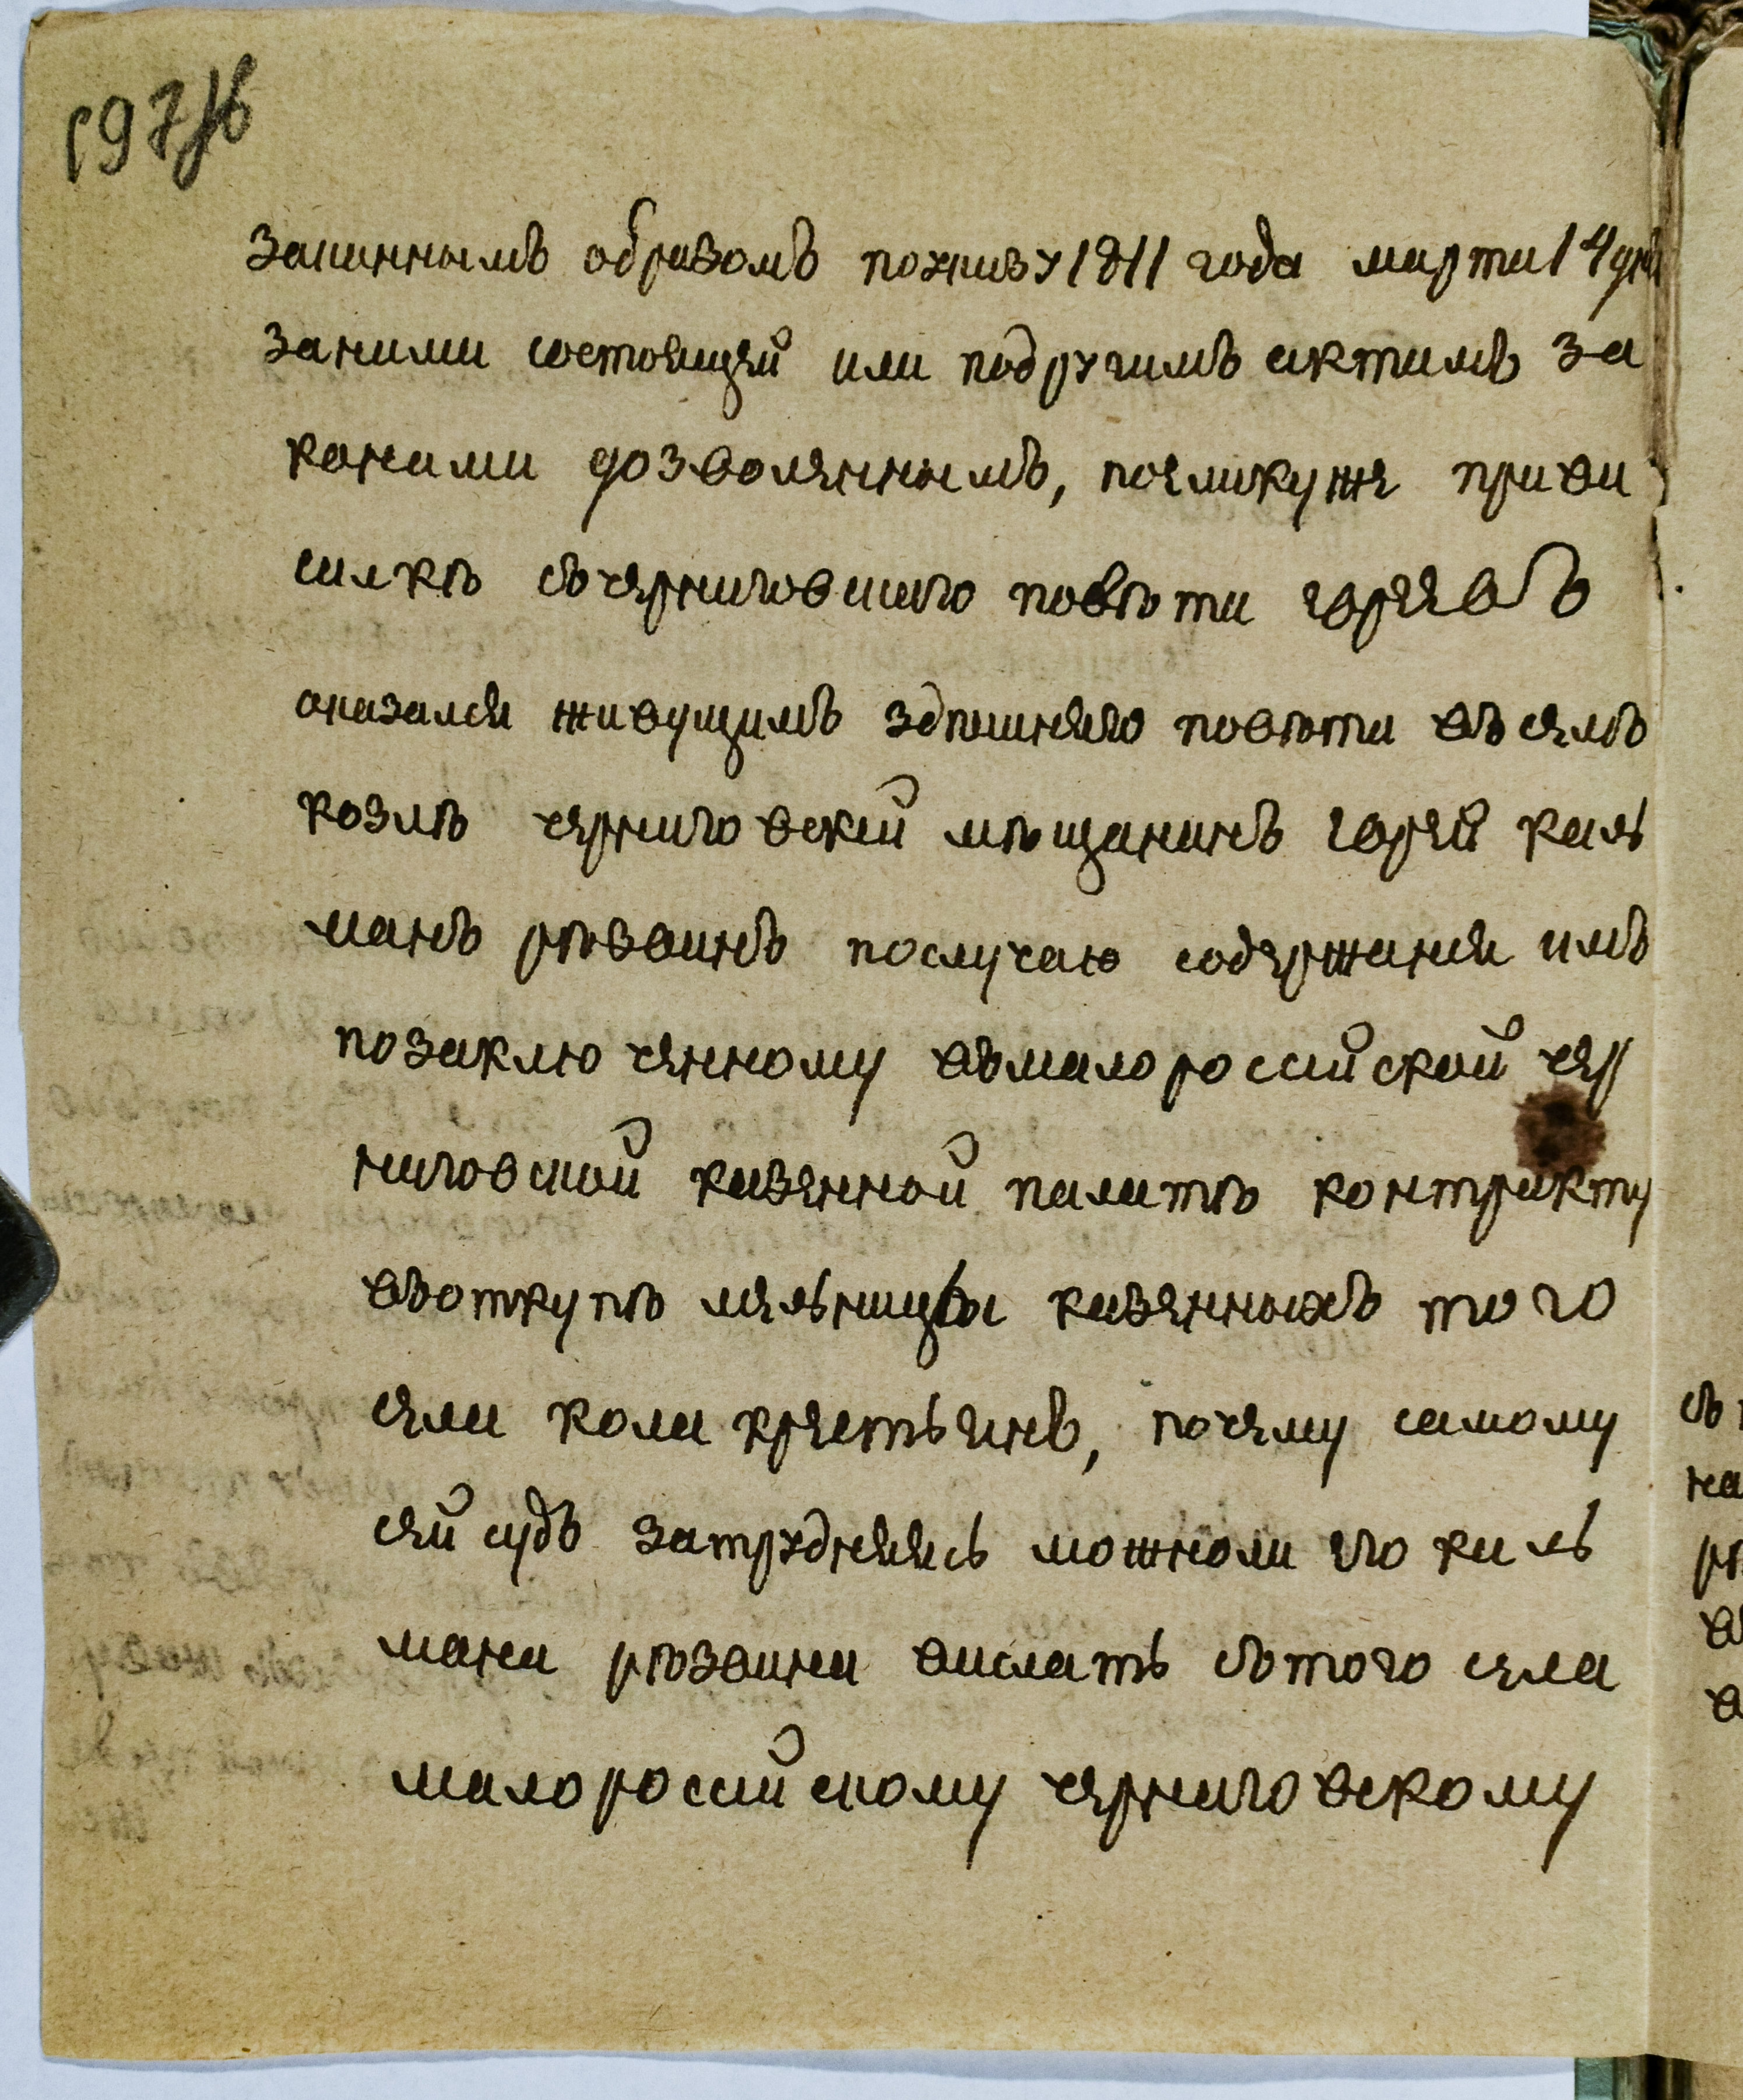 197 об
законнымъ образомъ поуказу 1811 года марта 14 дня
заними состоящей или подругимъ актамъ за
конами дозволеннымъ, поеликуже приви
силкѣ съчерниговского повѣта евреевъ
оказался живущимъ здѣшняго повѣта въселѣ
козлѣ черниговскій мѣщанинъ еврей каль
манъ рѣзвинъ послучаю содержания имъ
позаключенному вмалороссійской чер
ниговской казенной палатѣ контракту
воткупѣ мельницы казенныхъ того
села кола крестьянъ, почему самому
сей судъ затрудняясь можноли его каль
мана рѣзвина вислать стого села
малороссійскому черниговскому